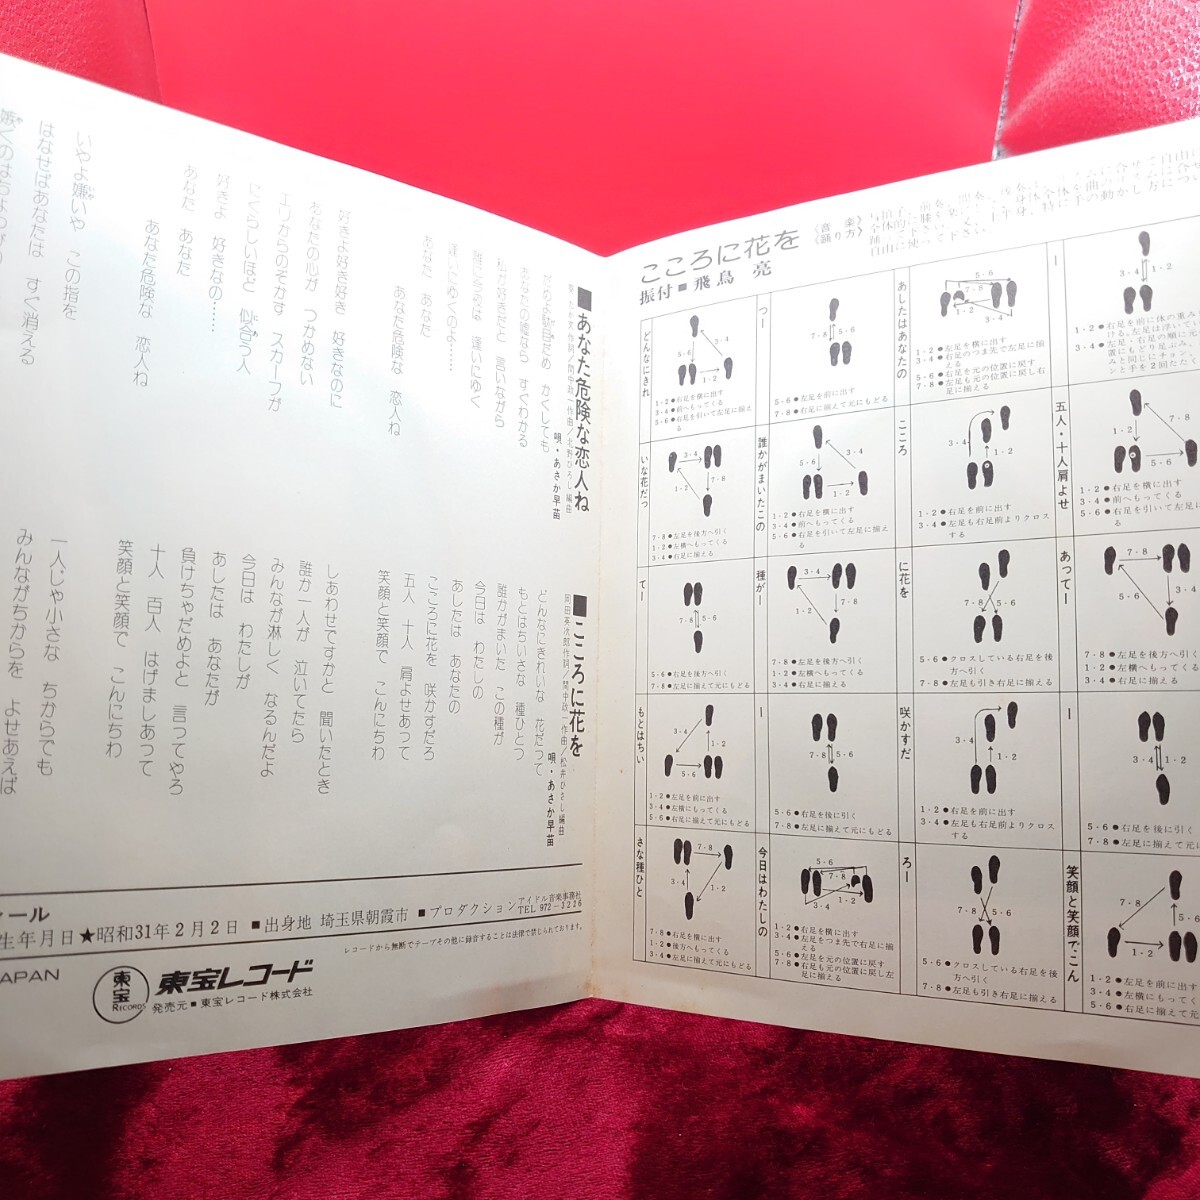 ■あなた危険な恋人ね
唄・あさか早苗
かくしても
あなたの嘘なら すぐわかる
私が好きだと 言いながら
誰に今夜は 逢いにゆく
逢いにゆくのよ…
あなた あなた
あなた危険な 恋人ね
好きよ好き好き 好きなのに
あなたの心が つかめない
エリからのぞかす スカーフが
にくらしいほど 似合う人
好きよ 好きなの……
あなた あなた
あなた危険な 恋人ね
いやよ嫌いや この指を
はなせばあなたは すぐ消える
■こころに花を
唄・あさか早苗
どんなにきれいな 花だって
もとはちいさな 種ひとつ
誰かがまいた この種が
今日は わたしの
あしたは あなたの
こころに花を 咲かすだろ
五人 十人 肩よせあって
笑顔と笑顔で こんにちわ
しあわせですかと 聞いたとき
誰か一人が 泣いてたら
みんなが淋しく なるんだよ
今日は わたしが
あしたは あなたが
負けちゃだめよと 言ってやろ
十人 百人 はげましあって
笑顔と笑顔で こんにちわ
一人じゃ小さな ちからでも
みんながちからを よせあえば
ィール
生年月日★昭和31年2月2日 ■出身地 埼玉県朝霞市 ■プロダクション アイドル音楽事務社
TEL 972-3226
レコードから無断でテープその他に録音することは法律で禁じられております。
JAPAN
東宝
RECORDS
東宝レコード
発売元■東宝レコード株式会社
こころに花を
振付■飛鳥 亮
《音楽》
《踊り方》
自由に使って下さい。
どんなにきれ
1・2●右足を横に出す
3・4●前へもってくる
6・5●右足を引いて左足に揃える
つー
5・6●左足を前に出す
7・8●右足に揃えて元にもどる
あしたはあなたの
1・2●左足を横に出す
3・4●右足のつま先で左足に揃える
5・6●右足を元の位置に戻す
7・8●左足も元の位置に戻し右足に揃える
ー
いな花だっ
7・8●左足を後方へ引く
1・2●左横へもってくる
3・4●右足に揃える
誰かがまいたこの
1・2●右足を横に出す
3・4●前へもってくる
5・6●右足を引いて左足に揃える
こころ
1・2●右足を前に出す
3・4●左足も右足前よりクロスする
五人・十人肩よせ
1・2●右足を横に出す
3・4●前へもってくる
5・6●右足を引いて左足に
てー
5・6●右足を後方へ引く
7・8●左足に揃えて元にもどる
種がー
7・8●左足を後方へ引く
1・2●左横へもってくる
3・4●右足に揃える
に花を
5・6●クロスしている右足を後方へ引く
7・8●左足も引き右足に揃える
あってー
7・8●左足を後方へ引く
1・2●左横へもってくる
3・4●右足に揃える
もとはちい
1・2●左足を前に出す
3・4●左横にもってくる
5・6●右足に揃えて元にもどる
ー
5・6●右足を後に引く
7・8●左足に揃えて元にもどる
咲かすだ
1・2●右足を前に出す
3・4●左足も右足前よりクロスする
ー
5・6●右足を後に引く
7・8●左足に揃えて元に
さな種ひと
7・8●右足を横に引く
1・2●後方へもってくる
3・4●左足に揃えて元にもどる
今日はわたしの
1・2●右足を横に出す
3・4●左足をつま先で右足に揃える
5・6●左足を元の位置に戻す
7・8●右足も元の位置に戻し左足に揃える
ろー
5・6●クロスしている右足を後方へ引く
7・8●左足も引き右足に揃える
笑顔と笑顔でこん
1・2●左足を前に出す
3・4●左横にもってくる
5・6●右足に揃えて元